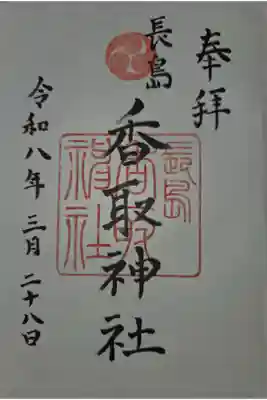 奉拝
長島
香取神社
令和八年 三月 二十八日
長島
香取
神社